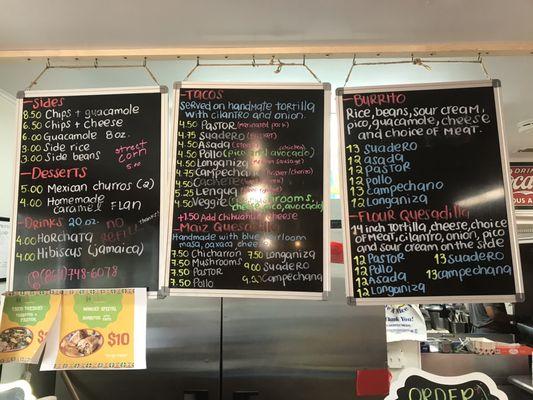 -Sides
8.50 Chips + guacamole
6.50 Chips + Cheese
6.00 Guacamole 8oz.
3.00 Side rice
3.00 Side beans
street corn
5.00
-Desserts
5.00 Mexican churros (2)
4.00 Homemade Caramel Flan
-Drinks 20 oz
no refills
4.00 Horchata
4.00 Hibiscus (jamaica)
-Tacos
Served on handmate tortilla
with cilantro and onion.
4.50 Pastor (marinated pork)
4.75 Suadero
4.50 Asada
4.50 Pollo (pico and avocado)
4.50 Longaniza
4.75 Campechana
5.25 Lengua
4.50 Veggie
+1.50 Add Chihuahua cheese
-Maiz Quesadilla
Handmade with blue heirloom
masa, oaxaca cheese
7.50 Chicharron
7.50 Mushrooms
7.50 Pastor
7.50 Pollo
7.50 Longaniza
9.00 Suadero
Campechana
-Burrito
Rice, beans, sour cream,
pico, guacamole, cheese
and choice of meat.
13 Suadero
12 asada
12 Pastor
12 pollo
13 Campechano
12 Longaniza
-Flour Quesadilla
14 inch tortilla, cheese, choice
of meat, cilantro, onion, pico
and sour cream on the side
12 Pastor
12 Pollo
12 Asada
12 Longaniza
13 Suadero
13 campechano
$10
$10
Thank You!
ORDER